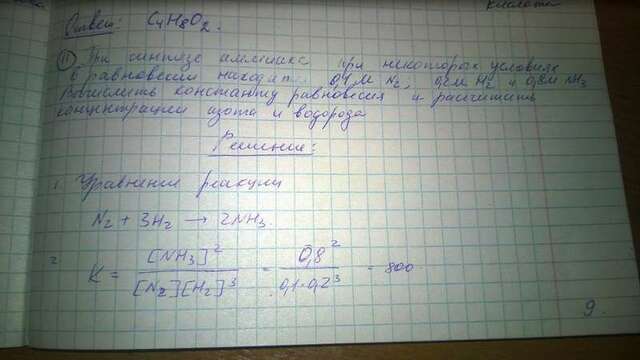 кислота
Ответ: C4H8O2.
11 При синтезе аммиака при некоторых условиях
в равновесии находят 0,1м N2, 0,2м H2 и 0,8м NH3
Вычислить константу равновесия и рассчитать
концентрации азота и водорода
Решение:
1. Уравнение реакции
N2 + 3H2 → 2NH3.
2 K = [NH3]² / [N2][H2]³ = 0,8² / 0,1·0,2³ = 800.
9.